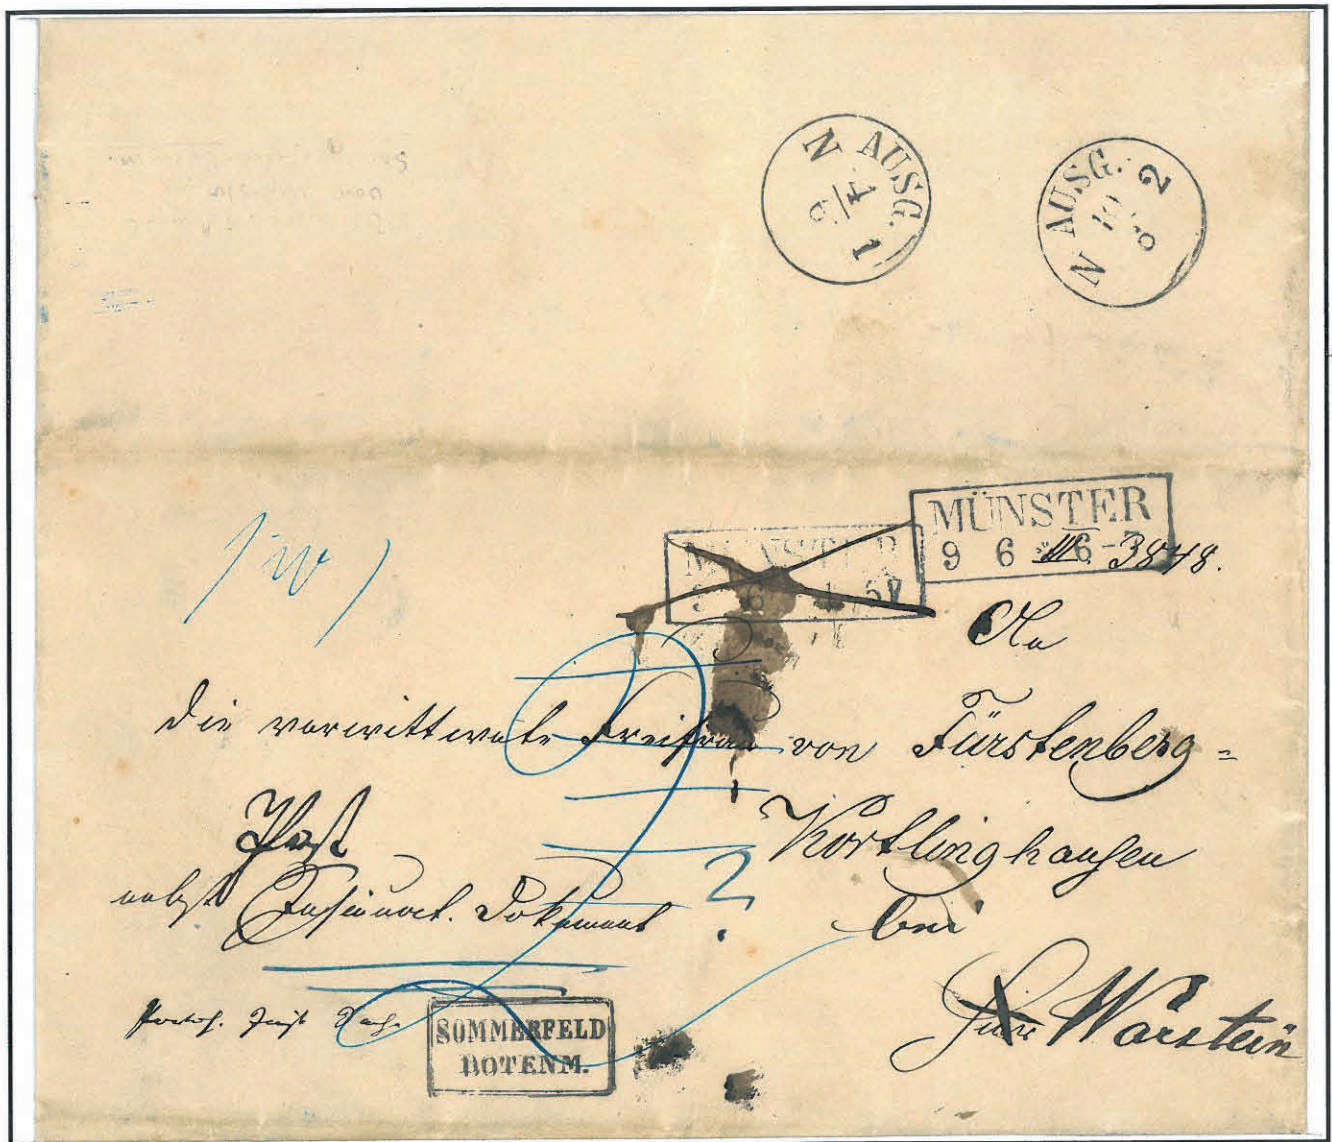 N AUSG. 1
9/4
N AUSG. 2
10/6
MÜNSTER
9 6 6-7
MÜNSTER
9 6
III. 3848.
An
die verwittwete Freifrau von Fürstenberg=
Körtlinghausen
nebst Insinuat. Dokument
?
bei
Warstein
SOMMERFELD
BOTENM.